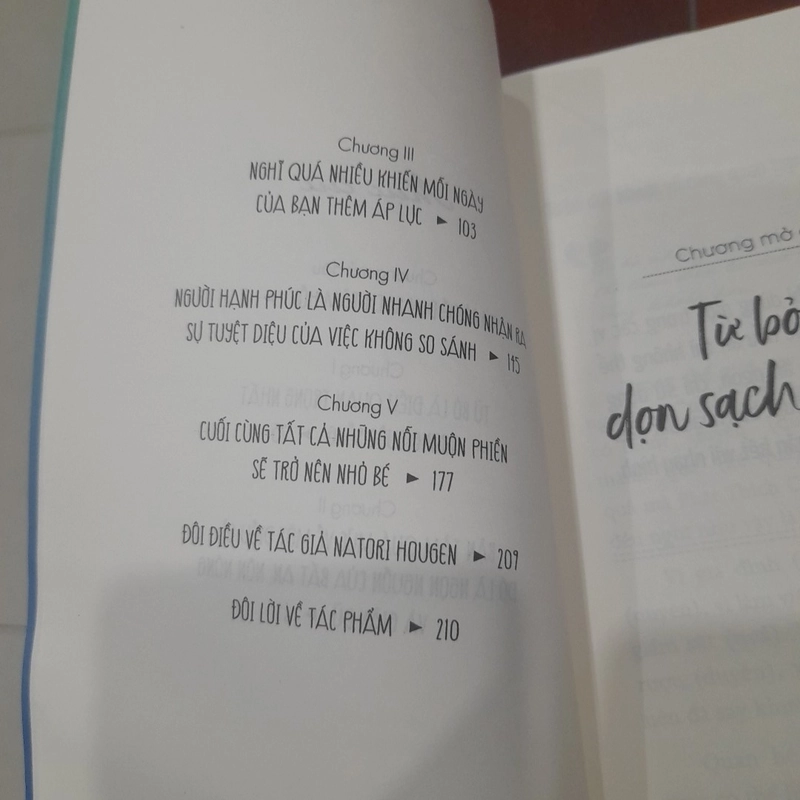 Chương III
NGHĨ QUÁ NHIỀU KHIẾN MỖI NGÀY
CỦA BẠN THÊM ÁP LỰC ► 103
Chương IV
NGƯỜI HẠNH PHÚC LÀ NGƯỜI NHANH CHÓNG NHẬN RA
SỰ TUYỆT DIỆU CỦA VIỆC KHÔNG SO SÁNH ► 145
Chương V
CUỐI CÙNG TẤT CẢ NHỮNG NỖI MUỘN PHIỀN
SẼ TRỞ NÊN NHỎ BÉ ► 177
ĐÔI ĐIỀU VỀ TÁC GIẢ NATORI HOUGEN ► 209
ĐÔI LỜI VỀ TÁC PHẨM ► 210
Chương mở
Từ bỏ
dọn sạch